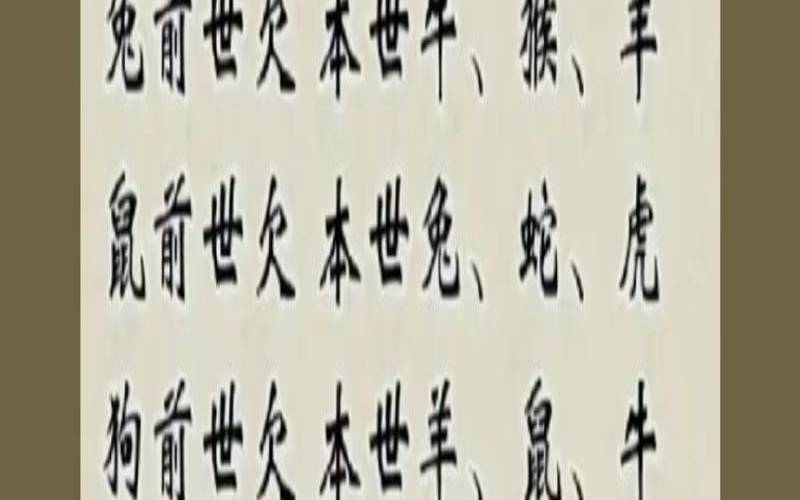 兔前世欠 本世牛、猴、羊
鼠前世欠 本世兔、蛇、虎
狗前世欠 本世羊、鼠、牛